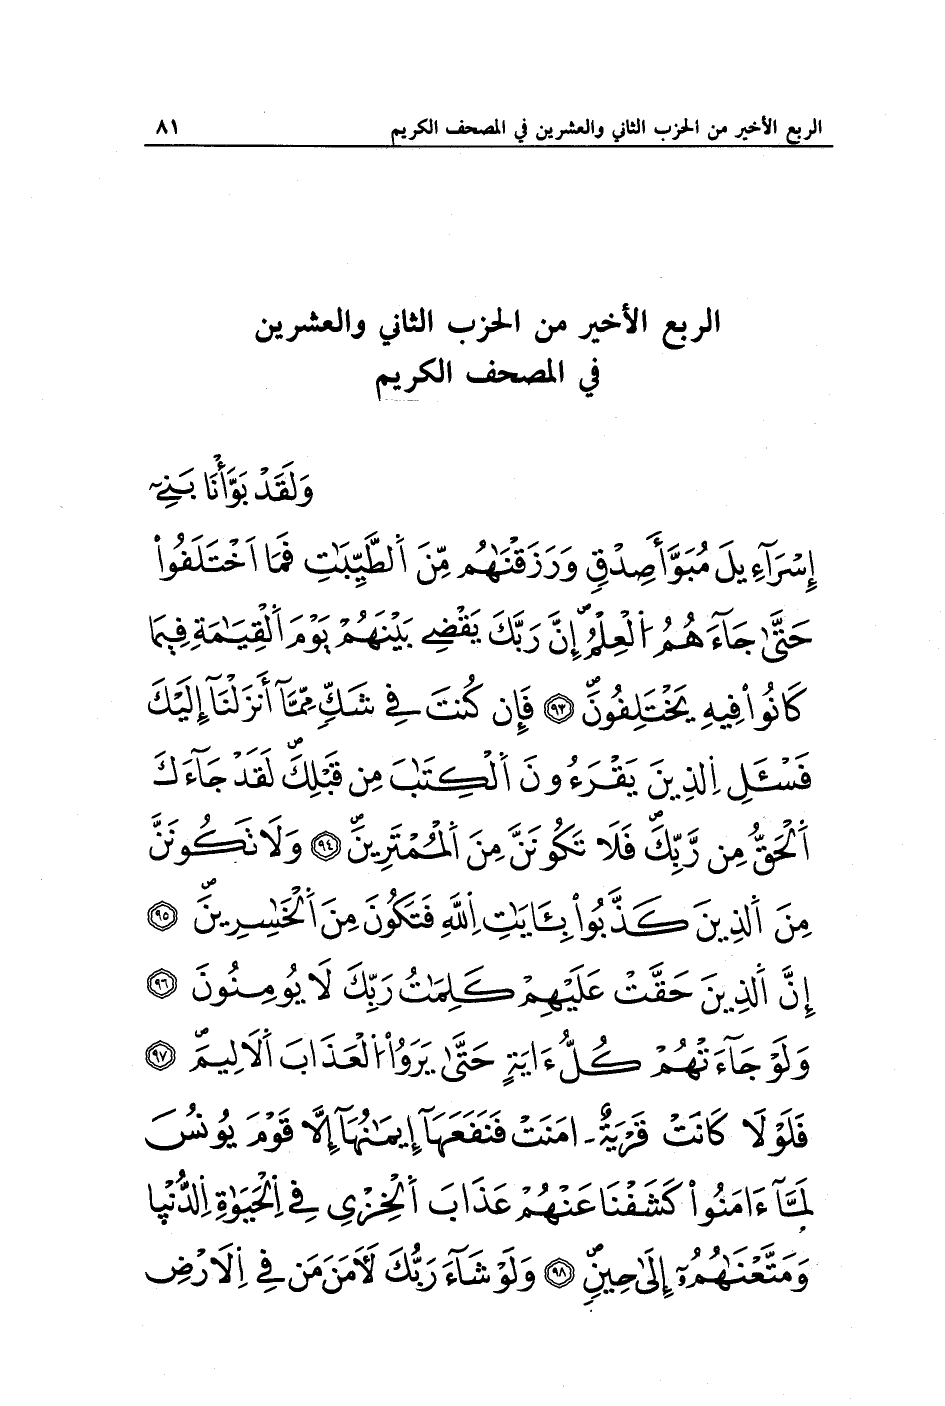 الربع الأخير من الحزب الثاني والعشرين في المصحف الكريم ٨١
الربع الأخير من الحزب الثاني والعشرين
في المصحف الكريم
وَلَقَدْ بَوَّأْنَا بَنِےٓ
إِسْرَآءِيلَ مُبَوَّأَ صِدْقٍ وَرَزَقْنَٰهُم مِّنَ اَ۬لطَّيِّبَٰتِ فَمَا اَ۪خْتَلَفُواْ
حَتَّىٰ جَآءَهُمُ اُ۬لْعِلْمُۖ إِنَّ رَبَّكَ يَقْضِے بَيْنَهُمْ يَوْمَ اَ۬لْقِيَٰمَةِ فِيمَا
كَانُواْ فِيهِ يَخْتَلِفُونَۖ ٩٣ فَإِن كُنتَ فِے شَكٍّ مِّمَّآ أَنزَلْنَآ إِلَيْكَ
فَسْـَٔلِ اِ۬لذِينَ يَقْرَءُونَ اَ۬لْكِتَٰبَ مِن قَبْلِكَۖ لَقَدْ جَآءَكَ
اَ۬لْحَقُّ مِن رَّبِّكَۖ فَلَا تَكُونَنَّ مِنَ اَ۬لْمُمْتَرِينَۖ ٩٤ وَلَا تَكُونَنَّ
مِنَ اَ۬لذِينَ كَذَّبُواْ بِـَٔايَٰتِ اِ۬للَّهِ فَتَكُونَ مِنَ اَ۬لْخَٰسِرِينَۖ ٩٥
إِنَّ اَ۬لذِينَ حَقَّتْ عَلَيْهِمْ كَلِمَٰتُ رَبِّكَ لَا يُومِنُونَ ٩٦
وَلَوْ جَآءَتْهُمْ كُلُّ ءَايَةٍ حَتَّىٰ يَرَوُاْ اُ۬لْعَذَابَ اَ۬لَالِيمَۖ ٩٧
فَلَوْلَا كَانَتْ قَرْيَةٌ ـ اٰمَنَتْ فَنَفَعَهَآ إِيمَٰنُهَآ إِلَّا قَوْمَ يُونُسَ
لَمَّآ ءَامَنُواْ كَشَفْنَا عَنْهُمْ عَذَابَ اَ۬لْخِزْيِ فِے اِ۬لْحَيَوٰةِ اِ۬لدُّنْيَا
وَمَتَّعْنَٰهُمُۥٓ إِلَىٰ حِينٍۖ ٩٨ وَلَوْ شَآءَ رَبُّكَ لَأٓمَنَ مَن فِے اِ۬لَارْضِ